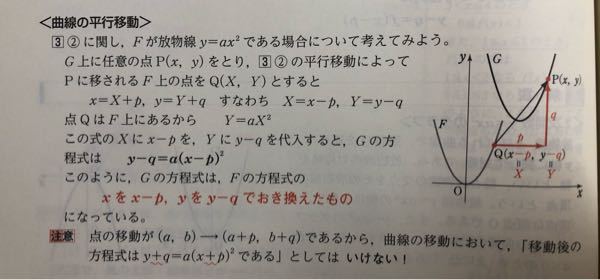 <曲線の平行移動>
3②に関し,Fが放物線y=ax²である場合について考えてみよう。
G上に任意の点P(x, y)をとり,3②の平行移動によって
Pに移されるF上の点をQ(X, Y)とすると
x=X+p, y=Y+q すなわち X=x−p, Y=y−q
点QはF上にあるから Y=aX²
この式のXにx−pを,Yにy−qを代入すると,Gの方
程式は y−q=a(x−p)²
このように,Gの方程式は,Fの方程式の
xをx−p,yをy−qでおき換えたもの
になっている。
注意 点の移動が(a, b)→(a+p, b+q)であるから,曲線の移動において,「移動後の
方程式はy+q=a(x+p)²である」としては いけない!
y
G
P(x, y)
q
F
p
Q(x−p, y−q)
= =
X Y
O
x